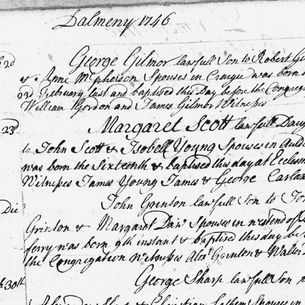 Dalmeny 1746
George Gilmor lawfull Son to Robert
& Anne McPherson Spouses in Craigie was born
February last and baptised this Day before the Congreg
William Gordon and James Gilmor Witnesses
23 Margaret Scott lawfull Dau
to John Scott & Isobell Young Spouses in
was born the Sixteenth & Baptised this day at
Witnesses James Young James & George
Die John Grinton lawfull Son to Jo
Grinton & Margaret Spouses in
ferry was born 9th instant & baptised this day
the Congregation Witnesses Alexr Grinton &
30th George Sharp lawfull Son